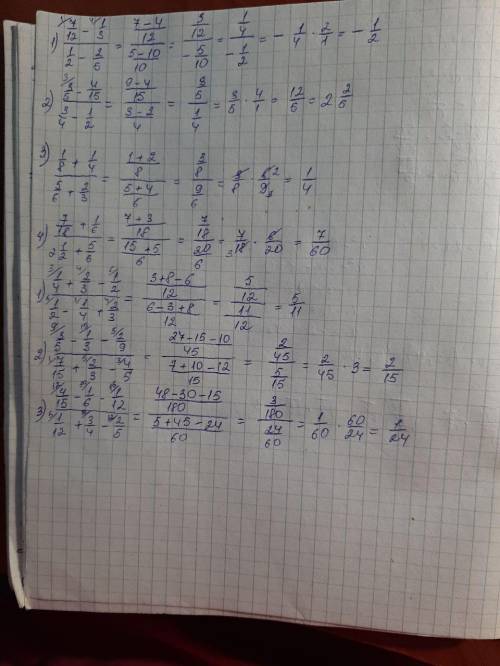 1) (7/12 - 1/3)/(1/2 - 2/6) = ((7-4)/12)/((5-10)/10) = (3/12)/(-5/10) = (1/4)/(-1/2) = -1/4 · 2/1 = -1/2
2) (3/5 - 4/15)/(3/4 - 1/2) = ((9-4)/15)/((3-2)/4) = (3/5)/(1/4) = 3/5 · 4/1 = 12/5 = 2 2/5
3) (1/8 + 1/4)/(5/6 + 2/3) = ((1+2)/8)/((5+4)/6) = (3/8)/(9/6) = 3/8 · 6/9 = 1/4
4) (7/18 + 1/6)/(2 1/2 + 5/6) = ((7+3)/18)/((15+5)/6) = (7/18)/(20/6) = 7/18 · 6/20 = 7/60
1) (1/4 + 2/3 - 1/2)/(1/2 - 1/4 + 2/3) = ((3+8-6)/12)/((6-3+8)/12) = (5/12)/(11/12) = 5/11
2) (3/5 - 1/3 - 2/9)/(7/15 + 2/3 - 4/5) = ((27-15-10)/45)/((7+10-12)/15) = (2/45)/(5/15) = 2/45 · 3 = 2/15
3) (4/15 - 1/6 - 1/12)/(1/12 + 3/4 - 2/5) = ((48-30-15)/180)/((5+45-24)/60) = (3/180)/(24/60) = 1/60 · 60/24 = 1/24